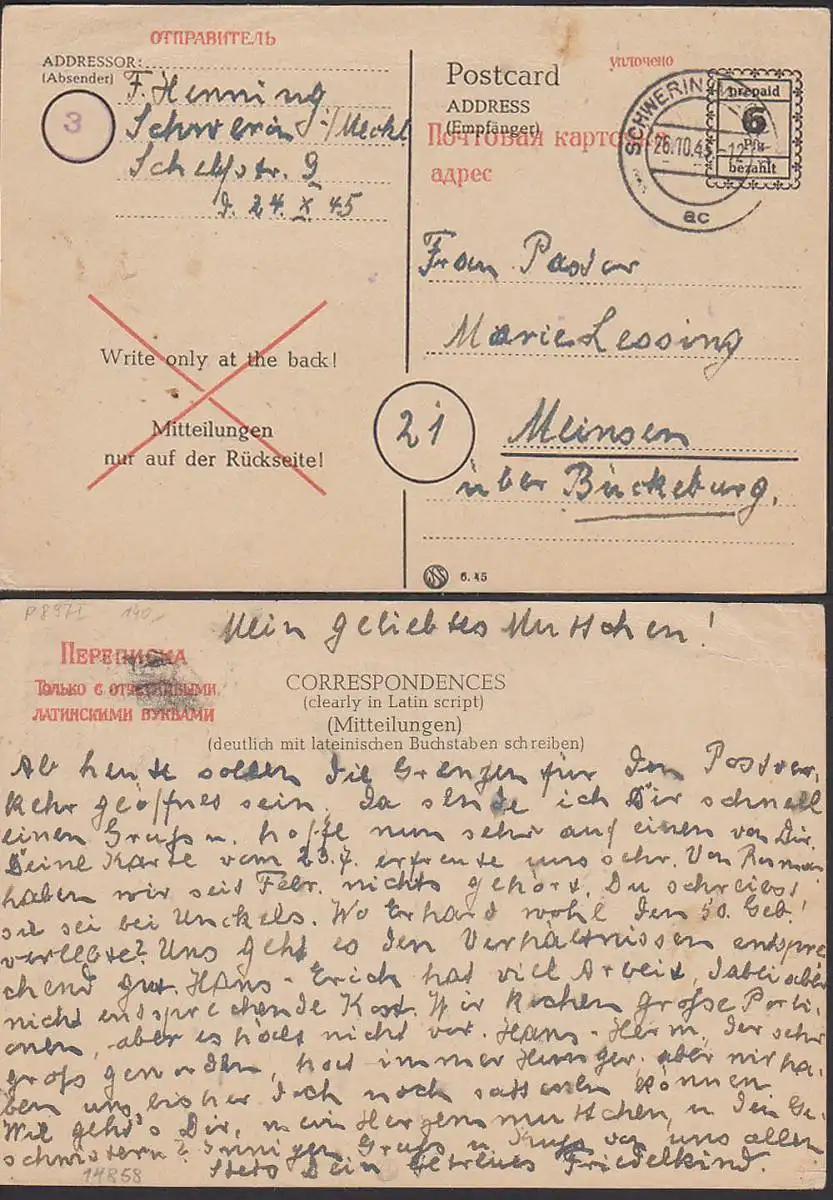 ОТПРАВИТЕЛЬ
ADDRESSOR:
(Absender)
F. Henning
Schwerin i/Meckl
Schelfstr. 9
d. 24. X 45
3
Postcard
ADDRESS
(Empfänger)
уплочено
Почтовая карточка
адрес
SCHWERIN
26.10.45-12
ac
prepaid
6
Pfg
bezahlt
Frau Pastor
Marie Lessing
21
Meinsen
über Bückeburg.
Write only at the back!
Mitteilungen
nur auf der Rückseite!
6. 45
P 897 I 140,-
Mein geliebtes Muttchen!
ПЕРЕПИСКА
Только с отчетливыми
ЛАТИНСКИМИ БУКВАМИ
CORRESPONDENCES
(clearly in Latin script)
(Mitteilungen)
(deutlich mit lateinischen Buchstaben schreiben)
Ab heute sollen die Grenzen für den Postver-
kehr geöffnet sein. Da sende ich Dir schnell
einen Gruß u. hoffe nun sehr auf einen von Dir.
Deine Karte vom 23.7. erfreute uns sehr. Von
haben wir seit Febr. nichts gehört. Du schreibst
sie sei bei Unckels. Wo Erhard wohl den 50. Geb.
verlebte? Uns geht es den Verhältnissen entspre
chend gut. Hans-Erich hat viel Arbeit, dabei aber
nicht entsprechende Kost. Wir kochen große Porti-
onen, aber es hält nicht vor. Hans-Herm, der sehr
groß geworden, hat immer Hunger, aber wir ha-
ben uns bisher doch noch satt essen können
Wie geht's Dir, mein Herzensmuttchen, u den Ge-
schwistern? Innigen Gruß u Kuß von uns allen
Stets Dein getreues Friedelkind.
14858